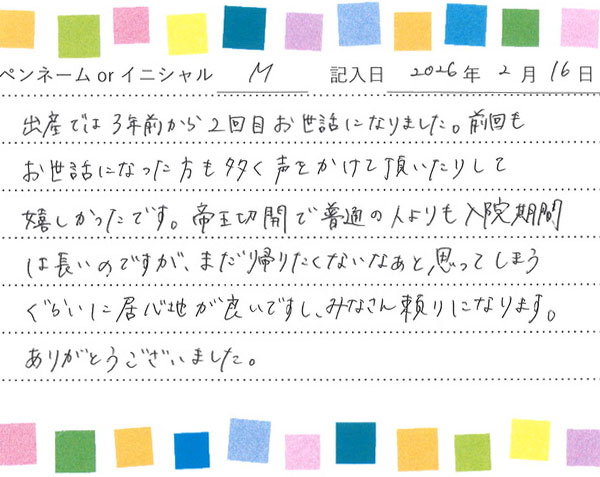 ペンネーム or イニシャル M 記入日 2026年 2月 16日
出産では3年前から2回目お世話になりました。前回も
お世話になった方も多く声をかけて頂いたりして
嬉しかったです。帝王切開で普通の人よりも入院期間
は長いのですが、まだ帰りたくないなあと思ってしまう
ぐらいに居心地が良いですし、みなさん頼りになります。
ありがとうございました。